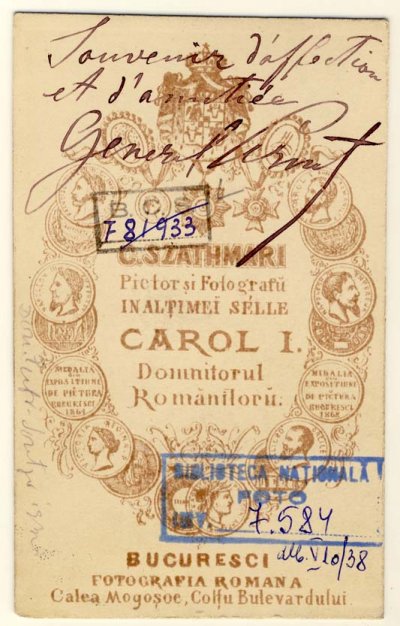 Souvenir d'affection
et d'amitiée
General
B.C.S.
F 8/933
C. SZATHMARI
Pictor și Fotografŭ
INALTIMEĬ SÉLLE
CAROL I.
Domnitorul
Românilorŭ.
MEDALIA
DIN
EXPOSITIUNE
DE PICTURA
BUCURESCI
MEDALIA
DIN
EXPOSITIUNE
DE PICTURA
BUCURESCI
BIBLIOTECA NAȚIONALĂ
FOTO
INV. 7.584
VI 0/38
BUCURESCI
FOTOGRAFIA ROMANA
Calea Mogoșoe, Colțu Bulevardului.